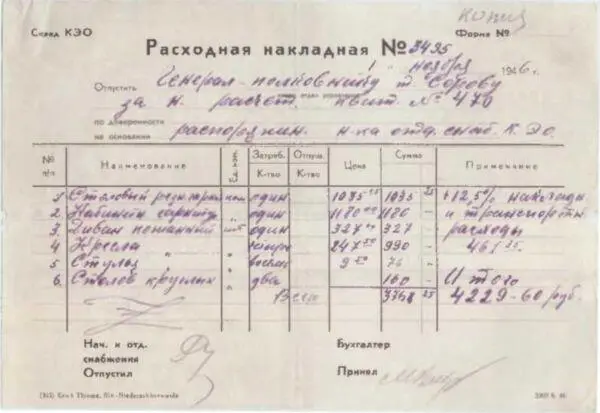 копия
Склад КЭО Форма №
Расходная накладная № 3435
" ноября 1946 г.
Отпустить Генерал-полковнику т. Серову
за н. расчет. квит. № 470
по доверенности
на основании распоряжен. н-ка отд. снаб. К.Э.О.
№ п/п Наименование Затреб. К-тво Отпущ. К-тво Цена Сумма Примечание
1 Столовый один 1035 25 1035 25 +12,5% накладн.
2 Кабинет один 1180 1180 и транспортн.
3 Диван кожанный шт один 327 327 расходы
4 Кресла " " четыре 247 50 990 461 35
5 Стулья " " восемь 9 50 76
6. Столов круглых " два 160 — Итого
Всего 3768 25 4229-60 руб.
Нач. и отд. снабжения Бухгалтер
Отпустил Принял